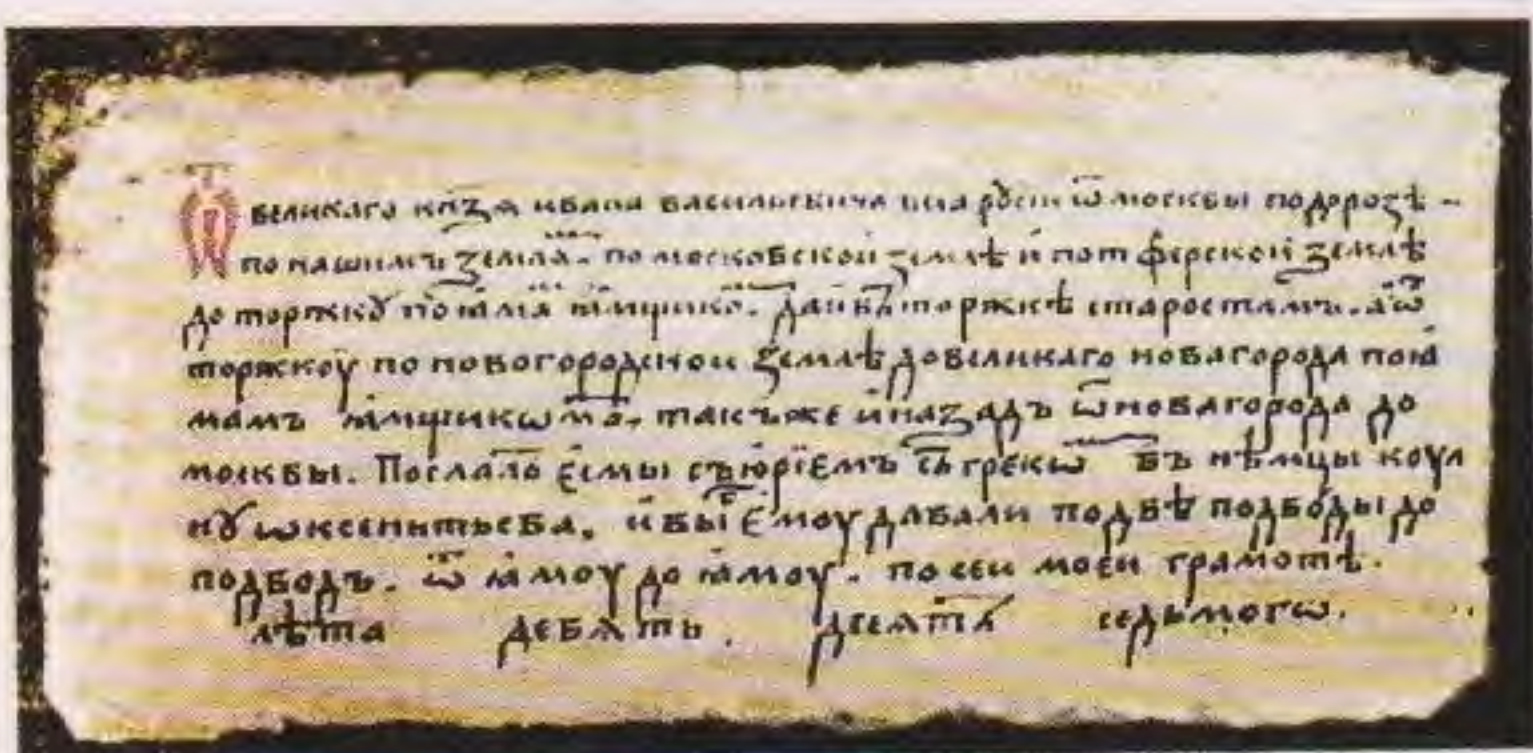 Ѿ великаго кнѧзѧ ивана васильевича всеа рꙋсии ѿ москвы по дорозѣ
по нашимъ землѧм. по московской землѣ и по тферской землѣ
до торжкꙋ по ꙗмѧ ꙗмщико. да и въ торжкѣ старостамъ. а ѿ
торжкоу по новогородскои землѣ до великаго новагорода по ꙗ
мамъ ꙗмщикѡмъ. такъже и назадъ ѿ новагорода до
москвы. Послалъ есмы съ юрїемъ съ грекѡ въ нѣмцы коул
кꙋ ѡксентьева. и вы ємоу давали по двѣ подводы до
подводъ. ѿ ꙗмоу до ꙗмоу. по сеи моеи грамотѣ.
лѣта девѧть десѧтъ седьмогѡ.